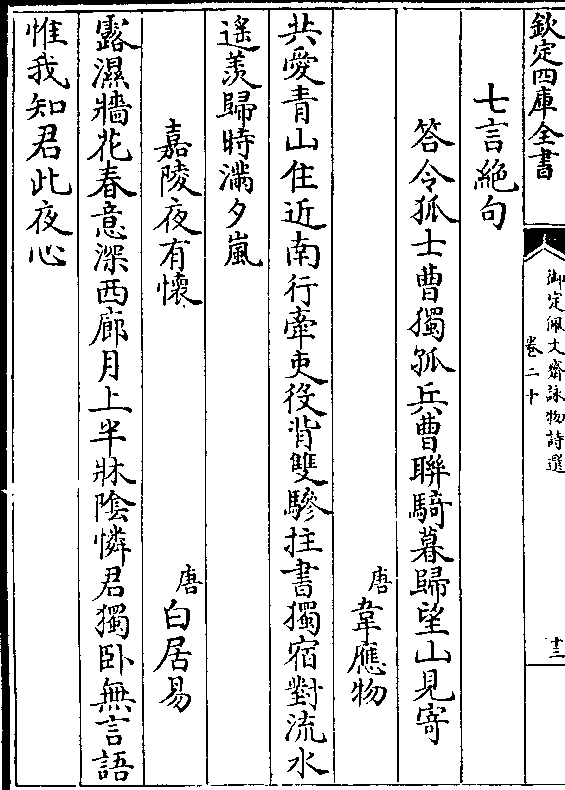 欽定四庫全書
御定佩文齋詠物詩選
卷二十
十三
七言絶句
答令狐士曹獨孤兵曹聯騎暮歸望山見寄
唐韋應物
共愛青山住近南行牽吏役背雙驂拄書獨宿對流水
遙羡歸時滿夕嵐
嘉陵夜有懷
唐白居易
露濕牆花春意深西廊月上半牀隂憐君獨卧無言語
惟我知君此夜心